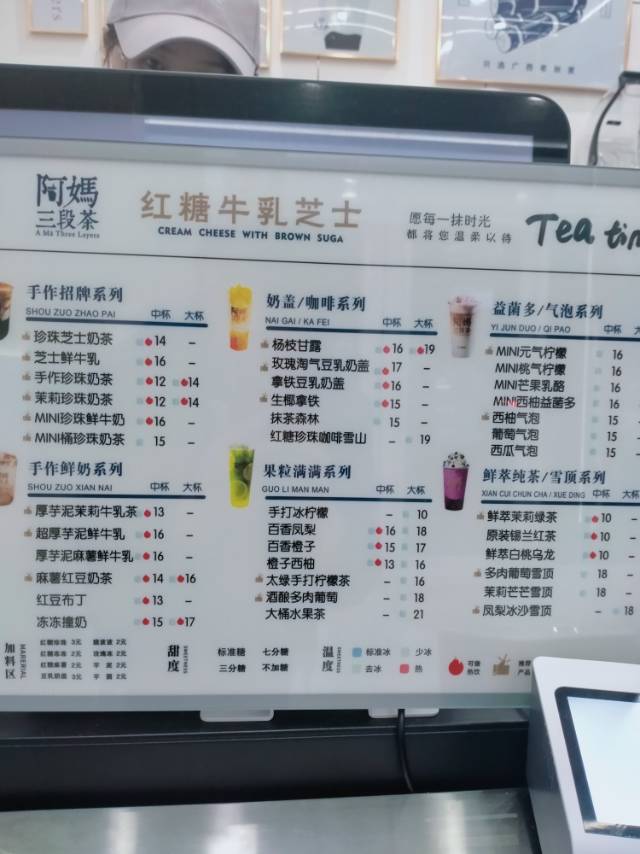 阿嬷
三段茶
A Má Three Layers
红糖牛乳芝士
CREAM CHEESE WITH BROWN SUGA
愿每一抹时光
都将您温柔以待
Tea tim
手作招牌系列
SHOU ZUO ZHAO PAI 中杯 大杯
珍珠芝士奶茶 14 –
芝士鲜牛乳 16 –
手作珍珠奶茶 12 14
茉莉珍珠奶茶 12 14
MINI珍珠鲜牛奶 16 –
MINI桶珍珠奶茶 15 –
奶盖/咖啡系列
NAI GAI / KA FEI 中杯 大杯
杨枝甘露 16 19
玫瑰淘气豆乳奶盖 17 –
拿铁豆乳奶盖 16 –
生椰拿铁 15 –
抹茶森林 15 –
红糖珍珠咖啡雪山 – 19
益菌多/气泡系列
YI JUN DUO / QI PAO 中杯 大杯
MINI元气柠檬 16
MINI桃气柠檬 16
MINI芒果乳酪 16
MINI西柚益菌多 16
西柚气泡 15
葡萄气泡 15
西瓜气泡 15
手作鲜奶系列
SHOU ZUO XIAN NAI 中杯 大杯
厚芋泥茉莉牛乳茶 13 –
超厚芋泥鲜牛乳 16 –
厚芋泥麻薯鲜牛乳 16 –
麻薯红豆奶茶 14 16
红豆布丁 13 –
冻冻撞奶 15 17
果粒满满系列
GUO LI MAN MAN 中杯 大杯
手打冰柠檬 – 10
百香凤梨 16 18
百香橙子 15 17
橙子西柚 13 16
太绿手打柠檬茶 – 16
酒酿多肉葡萄 – 18
大桶水果茶 – 21
鲜萃纯茶/雪顶系列
XIAN CUI CHUN CHA / XUE DING 中杯 大杯
鲜萃茉莉绿茶 10 –
原装锡兰红茶 10 –
鲜萃白桃乌龙 10 –
多肉葡萄雪顶 18 –
茉莉芒芒雪顶 18 –
凤梨冰沙雪顶 – 18
加料区
MARERIAL
红糖珍珠 3元
红糖冻冻 2元
红糖麻薯 2元
豆乳奶盖 3元
玫瑰冻 2元
芋泥 2元
芋圆 2元
甜度
SWEETNESS
标准糖 七分糖
三分糖 不加糖
温度
SWEETNESS
标准冰 少冰
去冰 热
可做
热饮
推荐
产品